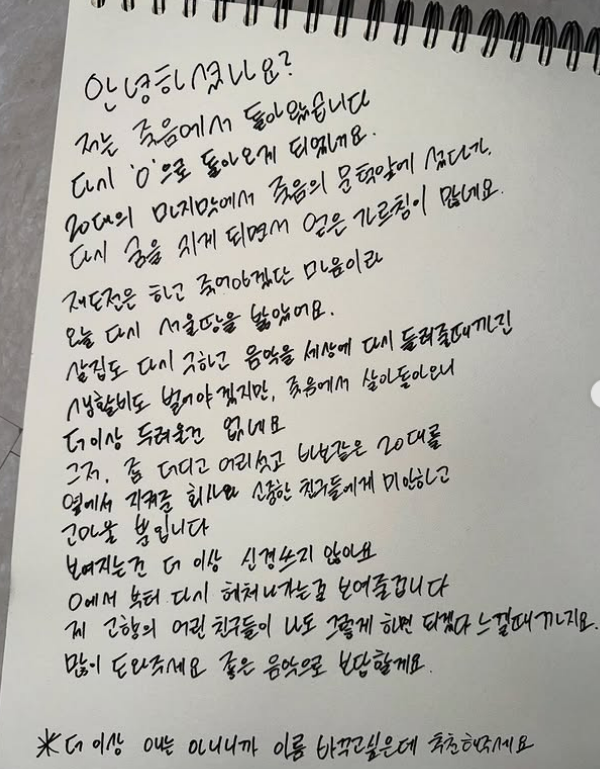 안녕하셨나요?
저는 죽음에서 돌아왔습니다
다시 '0'으로 돌아오게 되었네요.
20대의 마지막에서 죽음의 문턱앞에 섰다가,
다시 숨을 쉬게 되면서 얻은 가르침이 많네요.
재도전은 하고 죽어야겠단 마음이라
오늘 다시 서울땅을 밟았어요.
살집도 다시 구하고 음악을 세상에 다시 들려줄때까진
생활비도 벌어야 겠지만, 죽음에서 살아돌아오니
더이상 두려운건 없네요
그저, 좀 더디고 어리섯고 바보같은 20대를
옆에서 지켜준 회사와 소중한 친구들에게 미안하고
고마울 뿐입니다
보여지는건 더 이상 신경쓰지 않아요
0에서 부터 다시 헤쳐나가는걸 보여줄겁니다
제 고향의 어린 친구들이 나도 그렇게 하면 되겠다 느낄때까지요.
많이 도와주세요 좋은 음악으로 보답할게요.
*더 이상 애는 아니니까 이름 바꾸고싶은데 추천해주세요